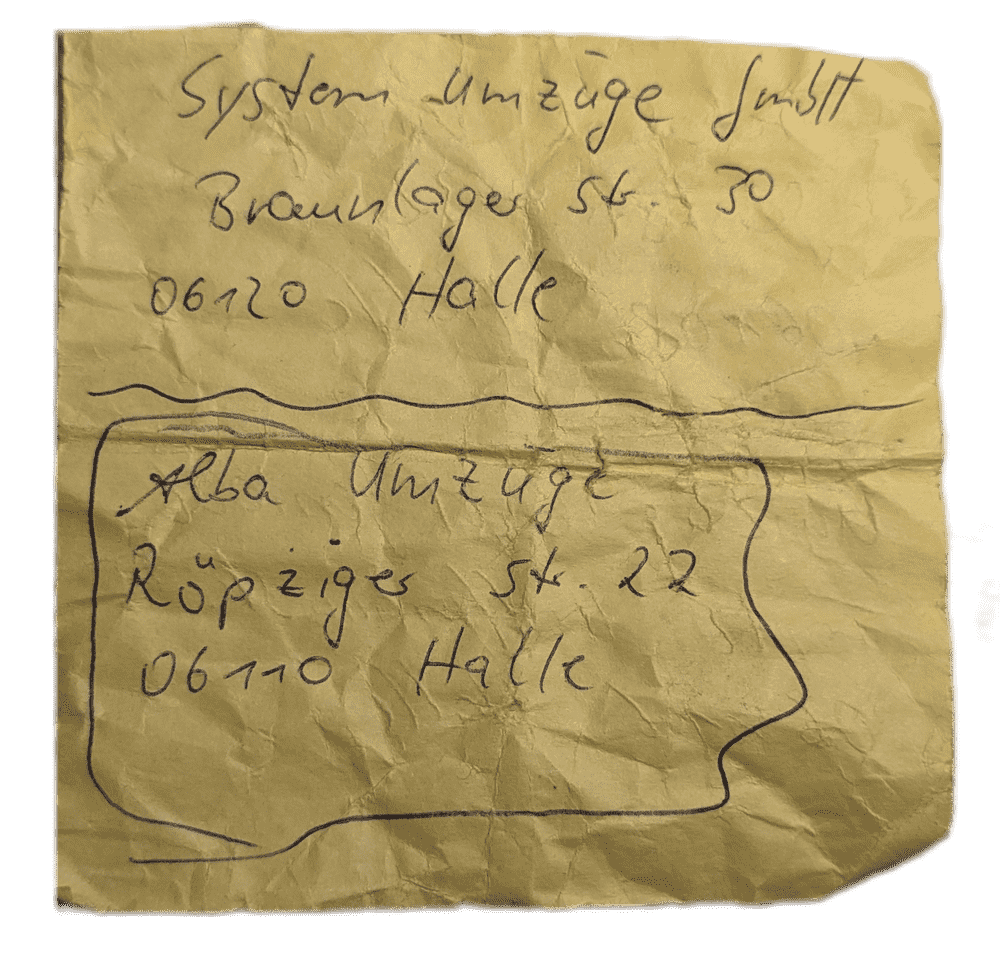 System Umzüge GmbH
Braunlager Str. 30
06120 Halle
Alba Umzüge
Röpziger Str. 22
06110 Halle